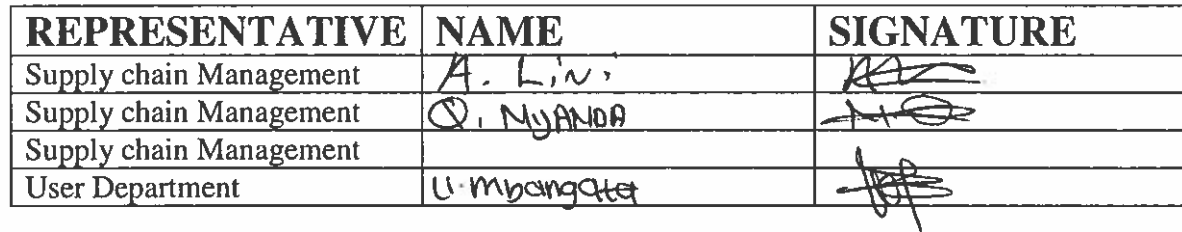 REPRESENTATIVE NAME SIGNATURE
Supply chain Management A. Livi
Supply chain Management Q. NYANDA
Supply chain Management
User Department U. Mbangata